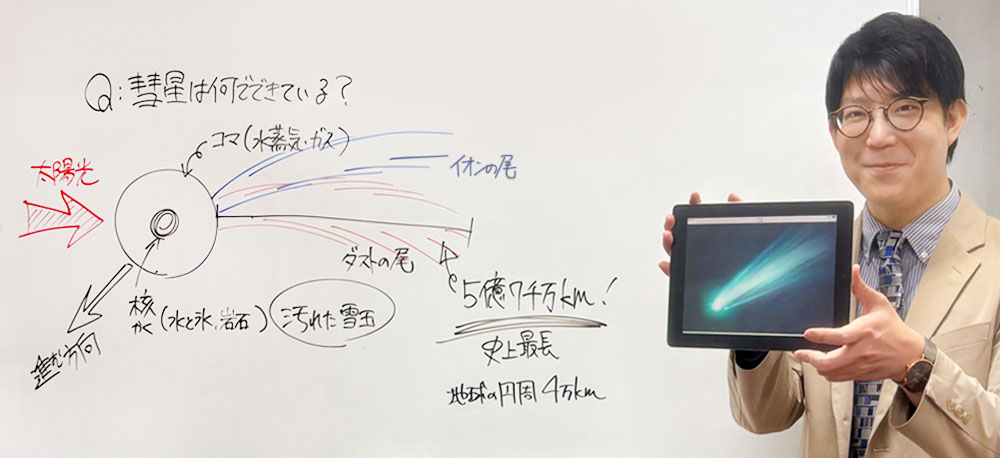 Q:彗星は何でできている?
コマ(水蒸気・ガス)
太陽光
イオンの尾
ダストの尾
5億7千万km!
史上最長
地球の円周4万km
核
かく(水と氷、岩石)
汚れた雪玉
進む方向